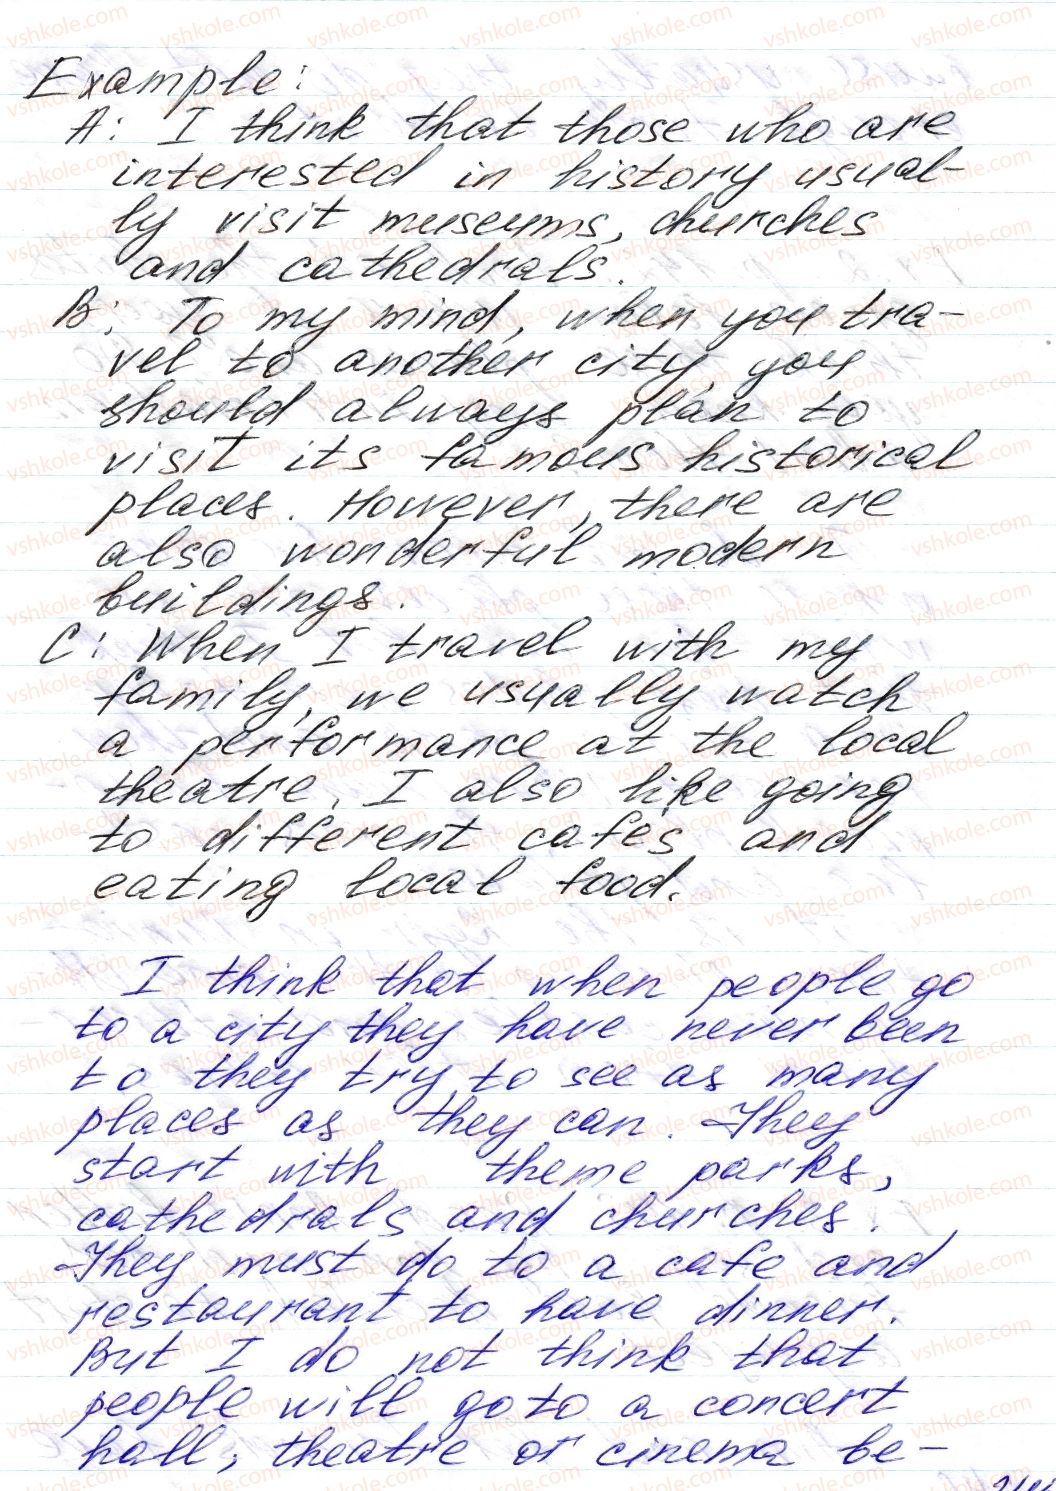 Example:
A: I think that those who are
interested in history usual-
ly visit museums, churches
and cathedrals.
B: To my mind, when you tra-
vel to another city, you
should always plan to
visit its famous historical
places. However, there are
also wonderful modern
buildings.
C: When I travel with my
family, we usually watch
a performance at the local
theatre. I also like going
to different cafes and
eating local food.
I think that when people go
to a city they have never been
to they try to see as many
places as they can. They
start with theme parks,
cathedrals and churches.
They must do to a cafe and
restaurant to have dinner.
But I do not think that
people will go to a concert
hall, theatre or cinema be-